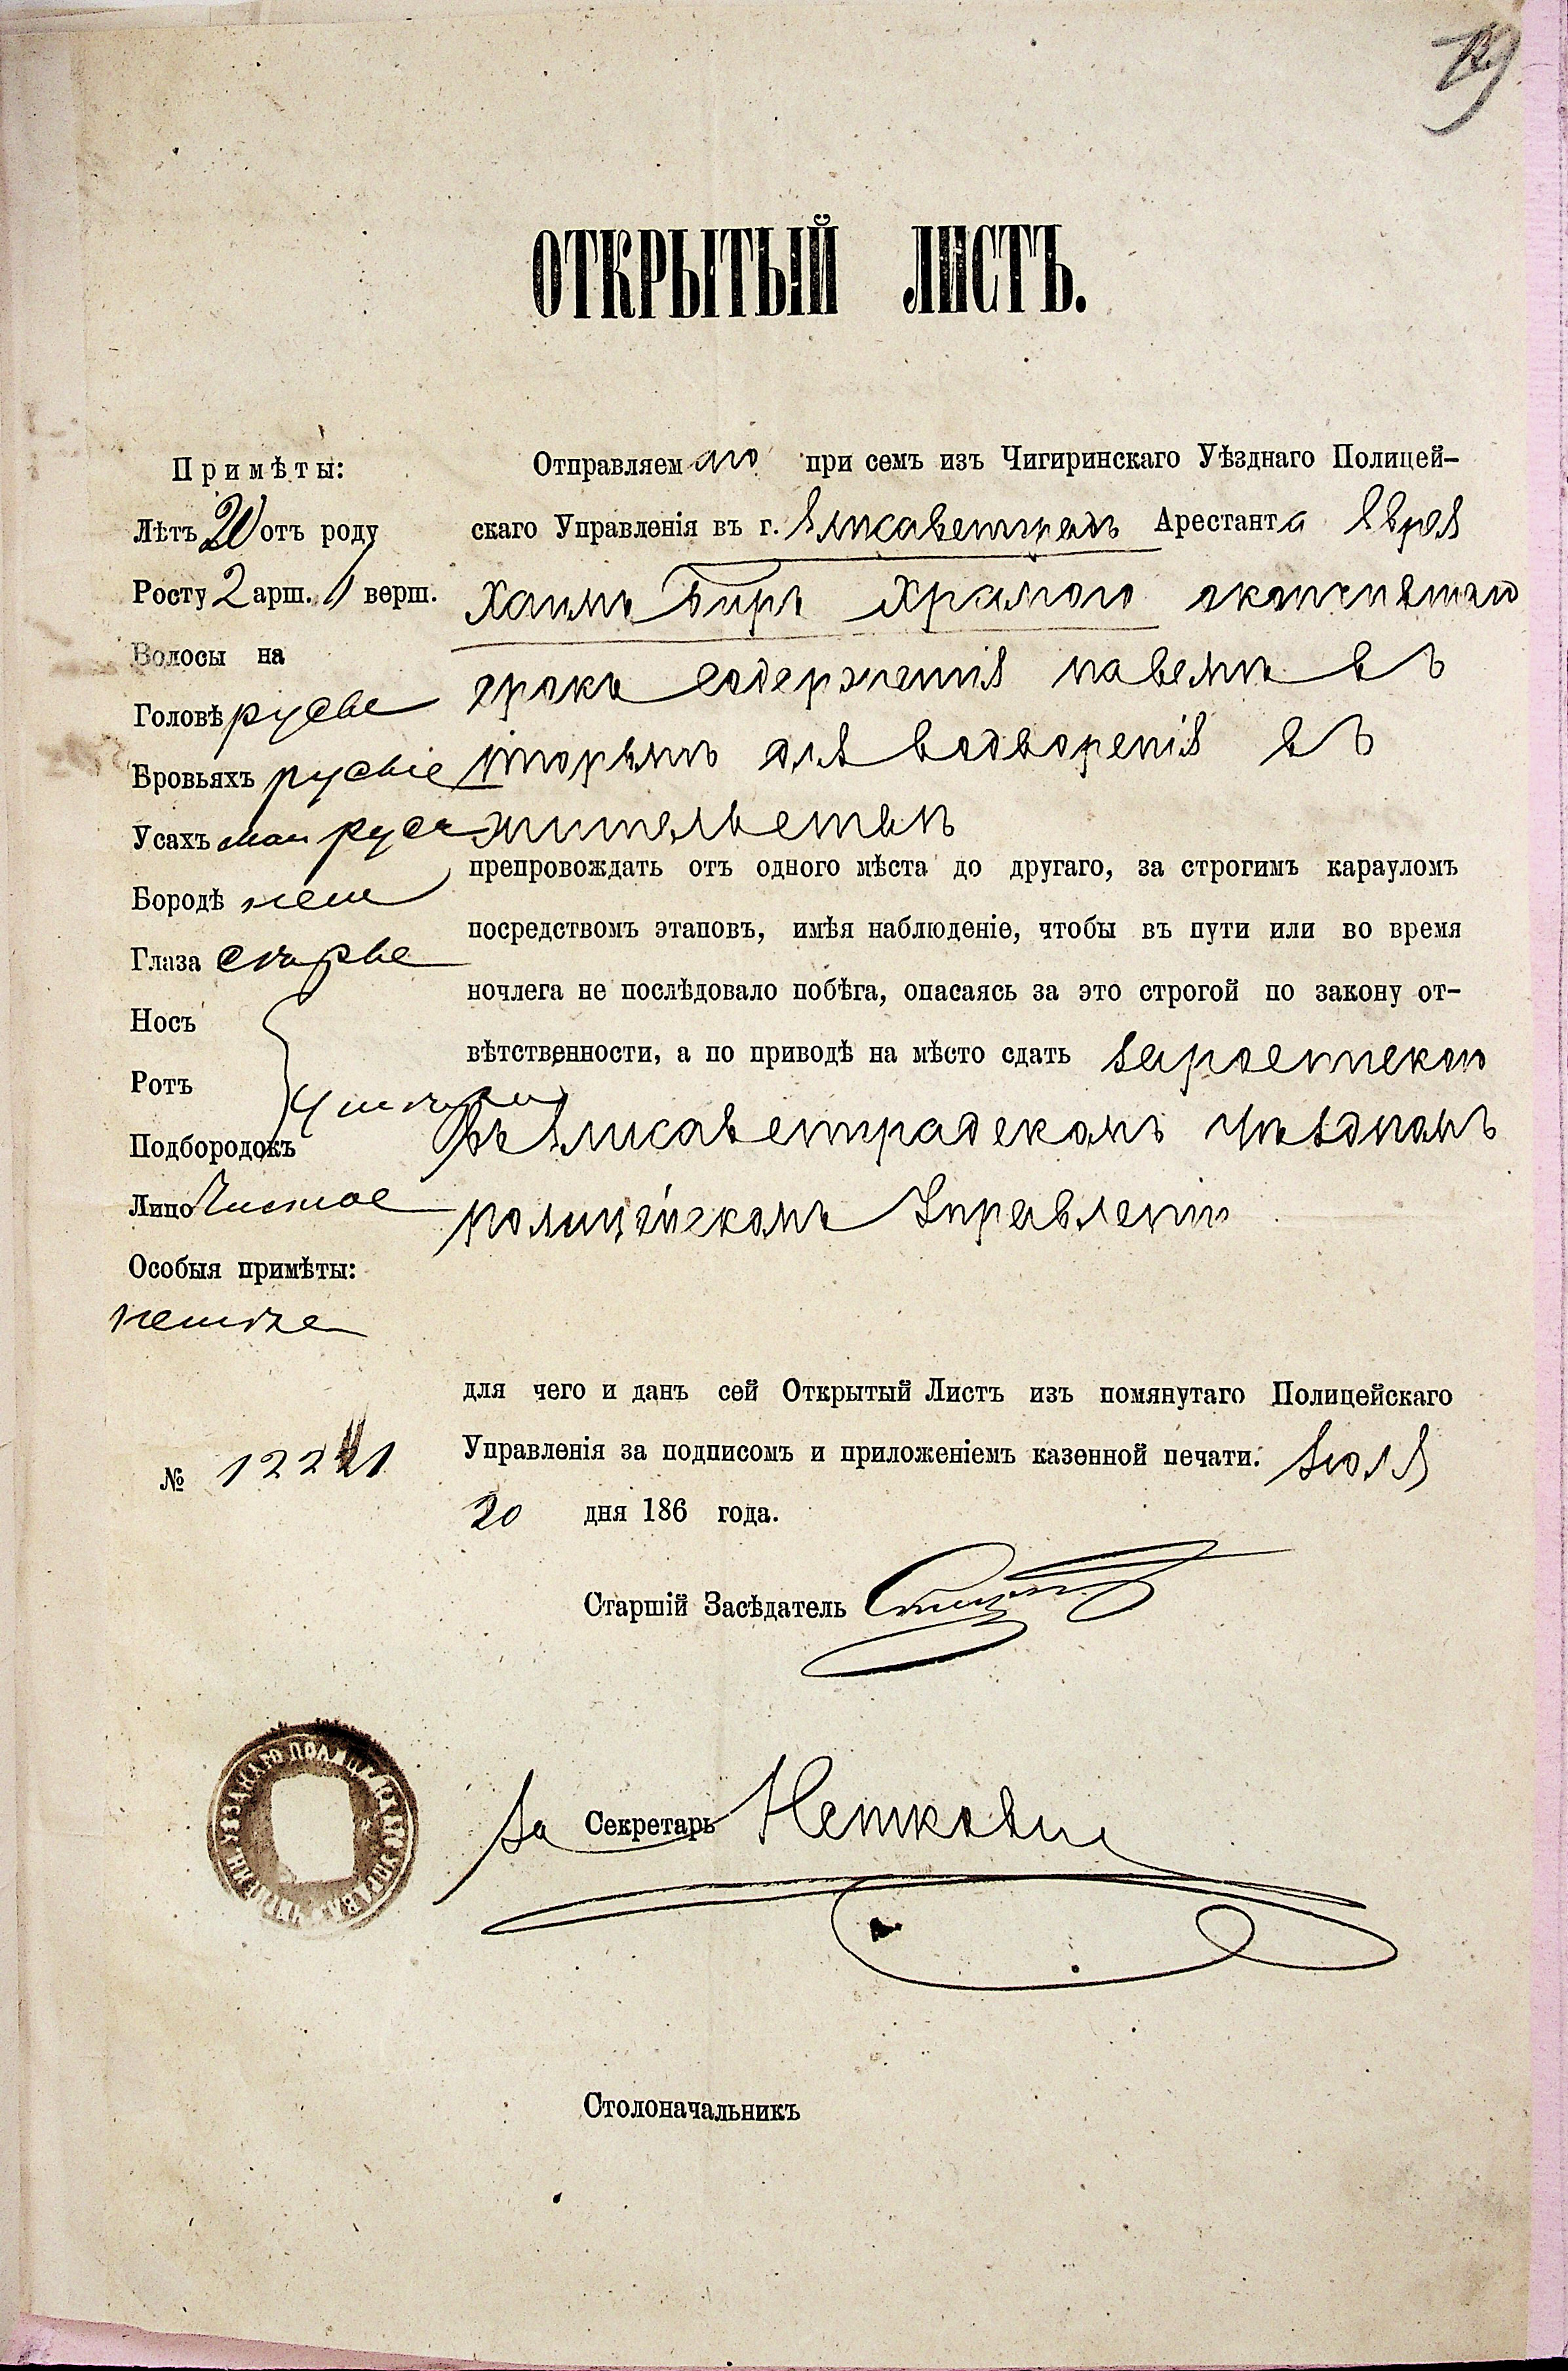 ОТКРЫТЫЙ ЛИСТЪ.
Примѣты:
Лѣтъ 20 отъ роду
Росту 2 арш. 1 верш.
Волосы на
Головѣ русые
Бровьяхъ русыіе
Усахъ
Бородѣ нет
Глаза серые
Носъ
Ротъ
Подбородокъ
Лицо Чистое
Особыя примѣты:
№
Отправляемаго при семъ изъ Чигиринскаго Уѣзднаго Полицей-
скаго Управленія въ г. Елисаветградъ Арестанта Еврея
Хаимъ Биръ Храмого окончившаго
срокъ содержанія въ
тюрьмѣ для водворенія въ
жительствѣ
препровождать отъ одного мѣста до другаго, за строгимъ карауломъ
посредствомъ этаповъ, имѣя наблюденіе, чтобы въ пути или во время
ночлега не послѣдовало побѣга, опасаясь за это строгой по закону от-
вѣтственности, а по приводѣ на мѣсто сдать
въ Елисаветградскомъ Уѣздномъ
полицейскомъ Управленіи
для чего и данъ сей Открытый Листъ изъ помянутаго Полицейскаго
Управленія за подписомъ и приложеніемъ казенной печати. Іюля
20 дня 186 года.
Старшій Засѣдатель
За Секретарь
Столоначальникъ